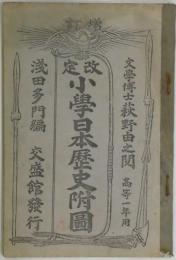 增訂
文學博士萩野由之閱
高等一年用
改定
小學日本歷史附圖
淺田多門編
交盛館發行